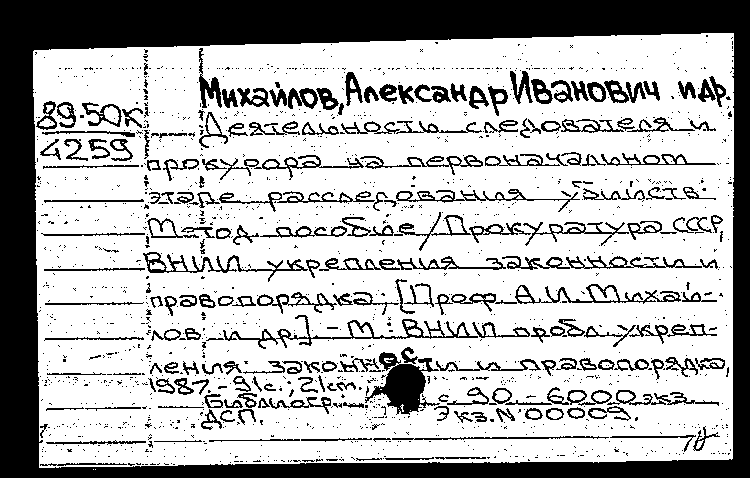 Михайлов, Александр Иванович и др.
89-50К
4259
Деятельность следователя и
прокурора на первоначальном
этапе расследования убийств:
Метод. пособие / Прокуратура СССР,
ВНИИ укрепления законности и
правопорядка; [Проф. А.И. Михай-
лов и др.] - М.: ВНИИ пробл. укреп-
ления законности и правопорядка,
1987. - 91с.; 21см.
Библиогр.: с. 90 - 6000 экз.
ДСП. Экз. N 00009.